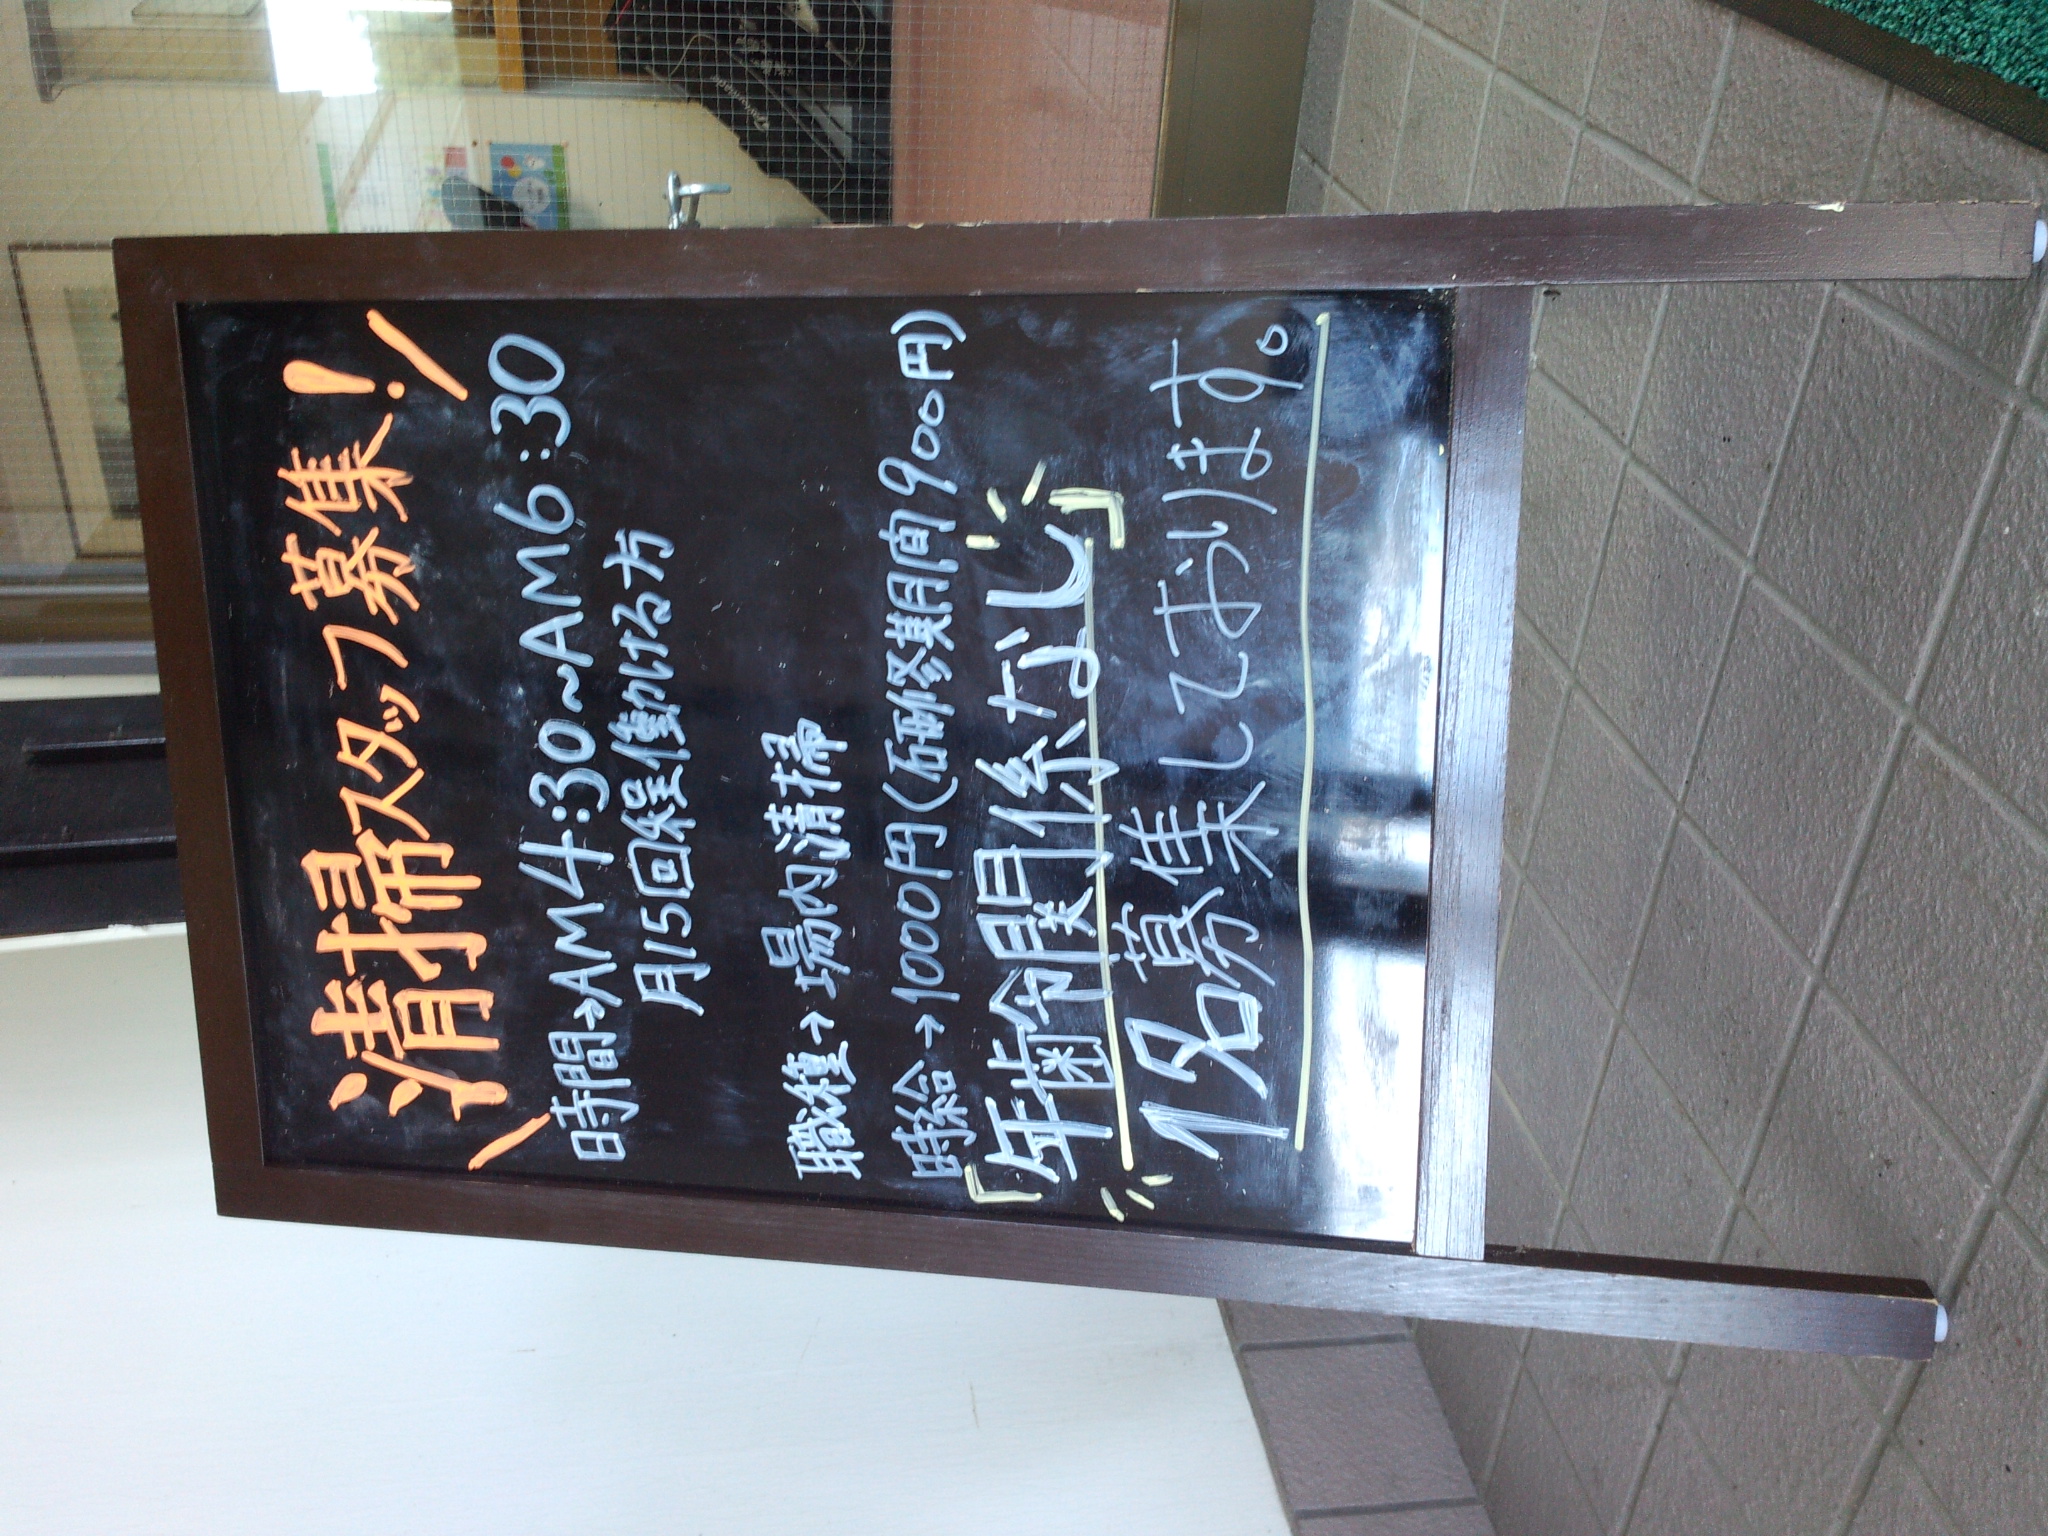 ＼清掃スタッフ募集!／
時間→AM4:30~AM6:30
月15回程働ける方
職種→場内清掃
時給→1000円(研修期間900円)
「年齢関係なし」
1名募集しております。